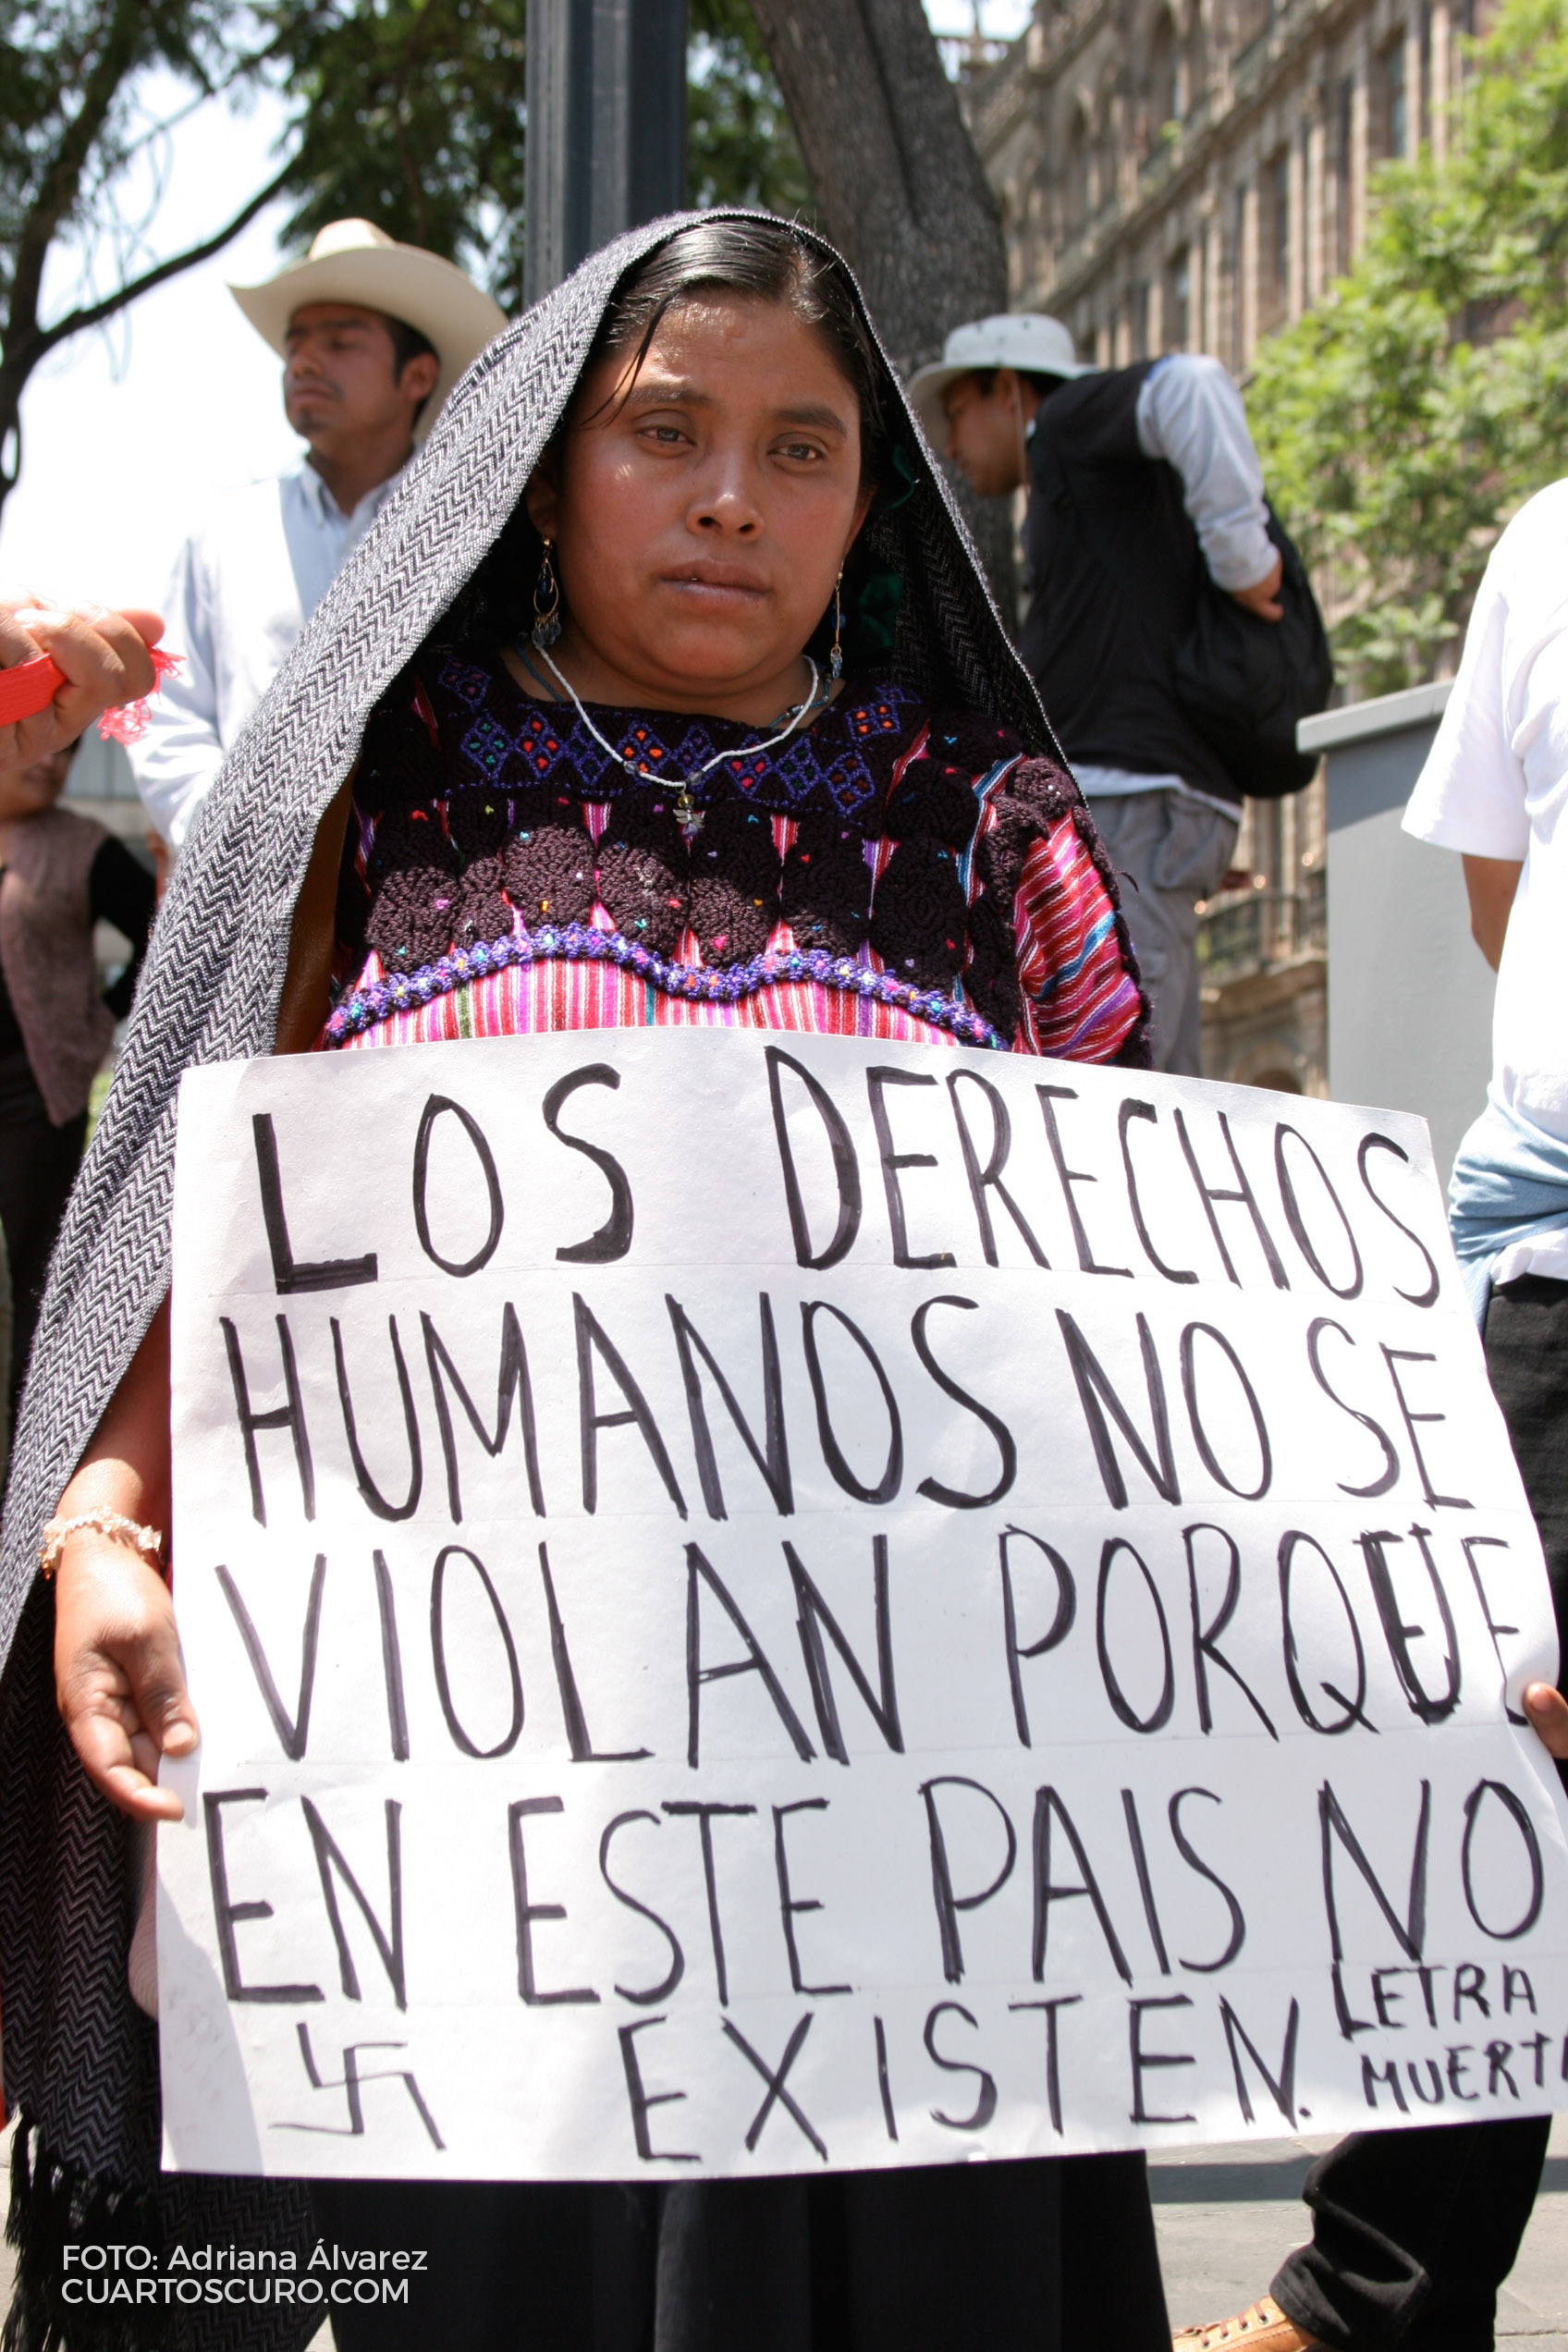 LOS DERECHOS
HUMANOS NO SE
VIOLAN PORQUE
EN ESTE PAIS NO
EXISTEN.
LETRA
MUERTA
FOTO: Adriana Álvarez
CUARTOSCURO.COM